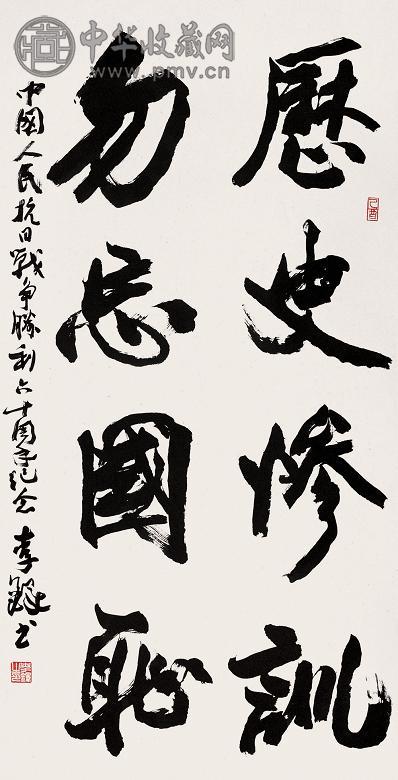 中华收藏网
www.pmv.cn
歷史慘訓
勿忘國恥
中國人民抗日戰爭勝利六十周年纪念 李鐸书
乙酉